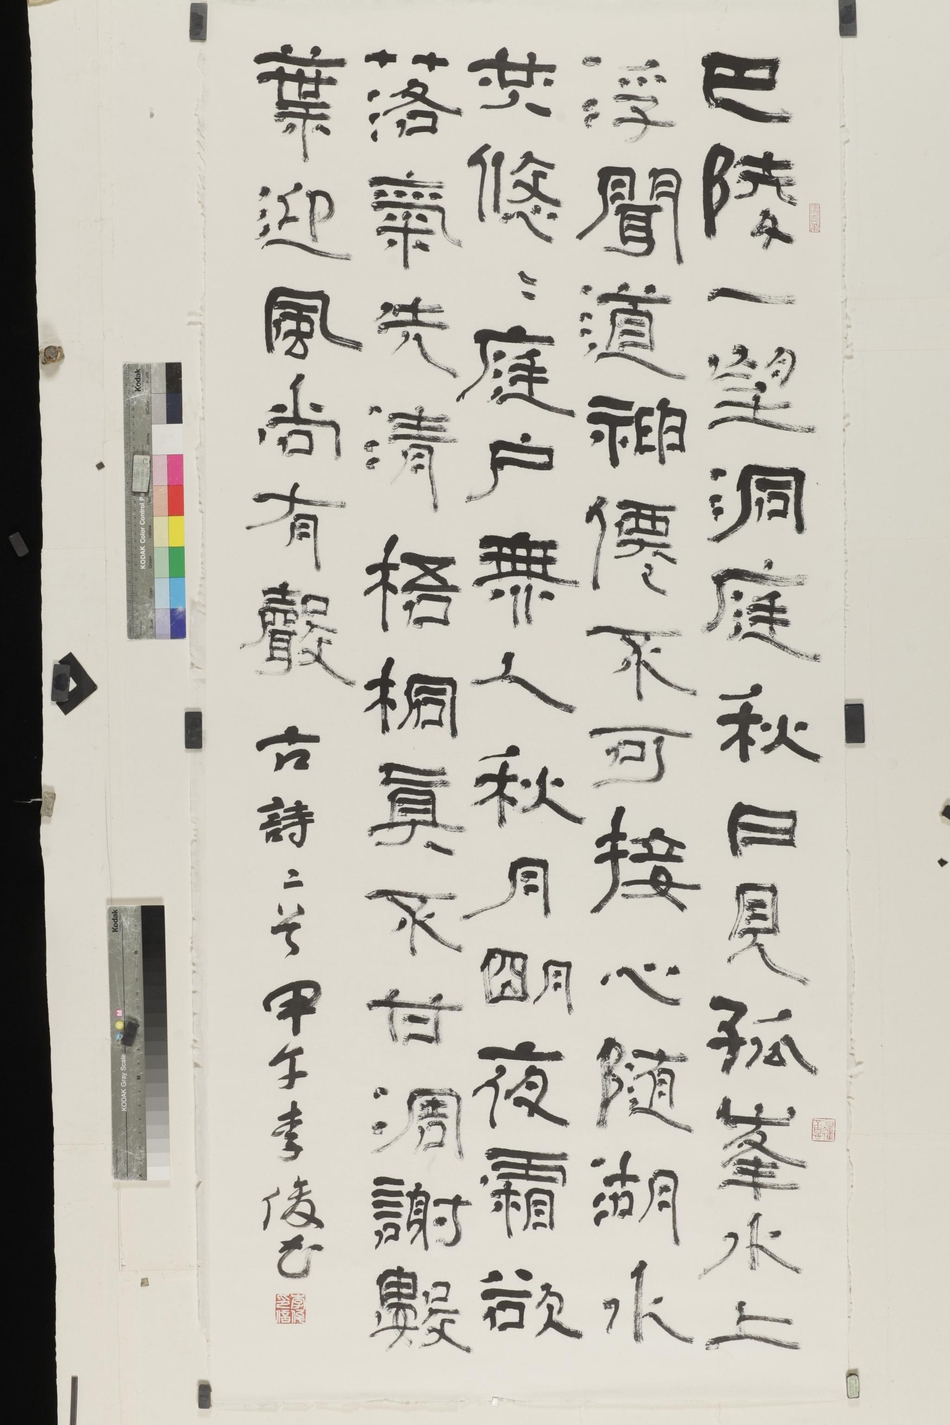 巴陵一望洞庭秋日見孤峯水上
浮聞道神僊不可接心隨湖水
共悠〻庭戶無人秋月明夜霜欲
落氣先清梧桐真不甘凋謝數
葉迎風尚有聲
古詩二首甲午李俊書
Kodak
KODAK Color Control P
Kodak
KODAK Gray Scale